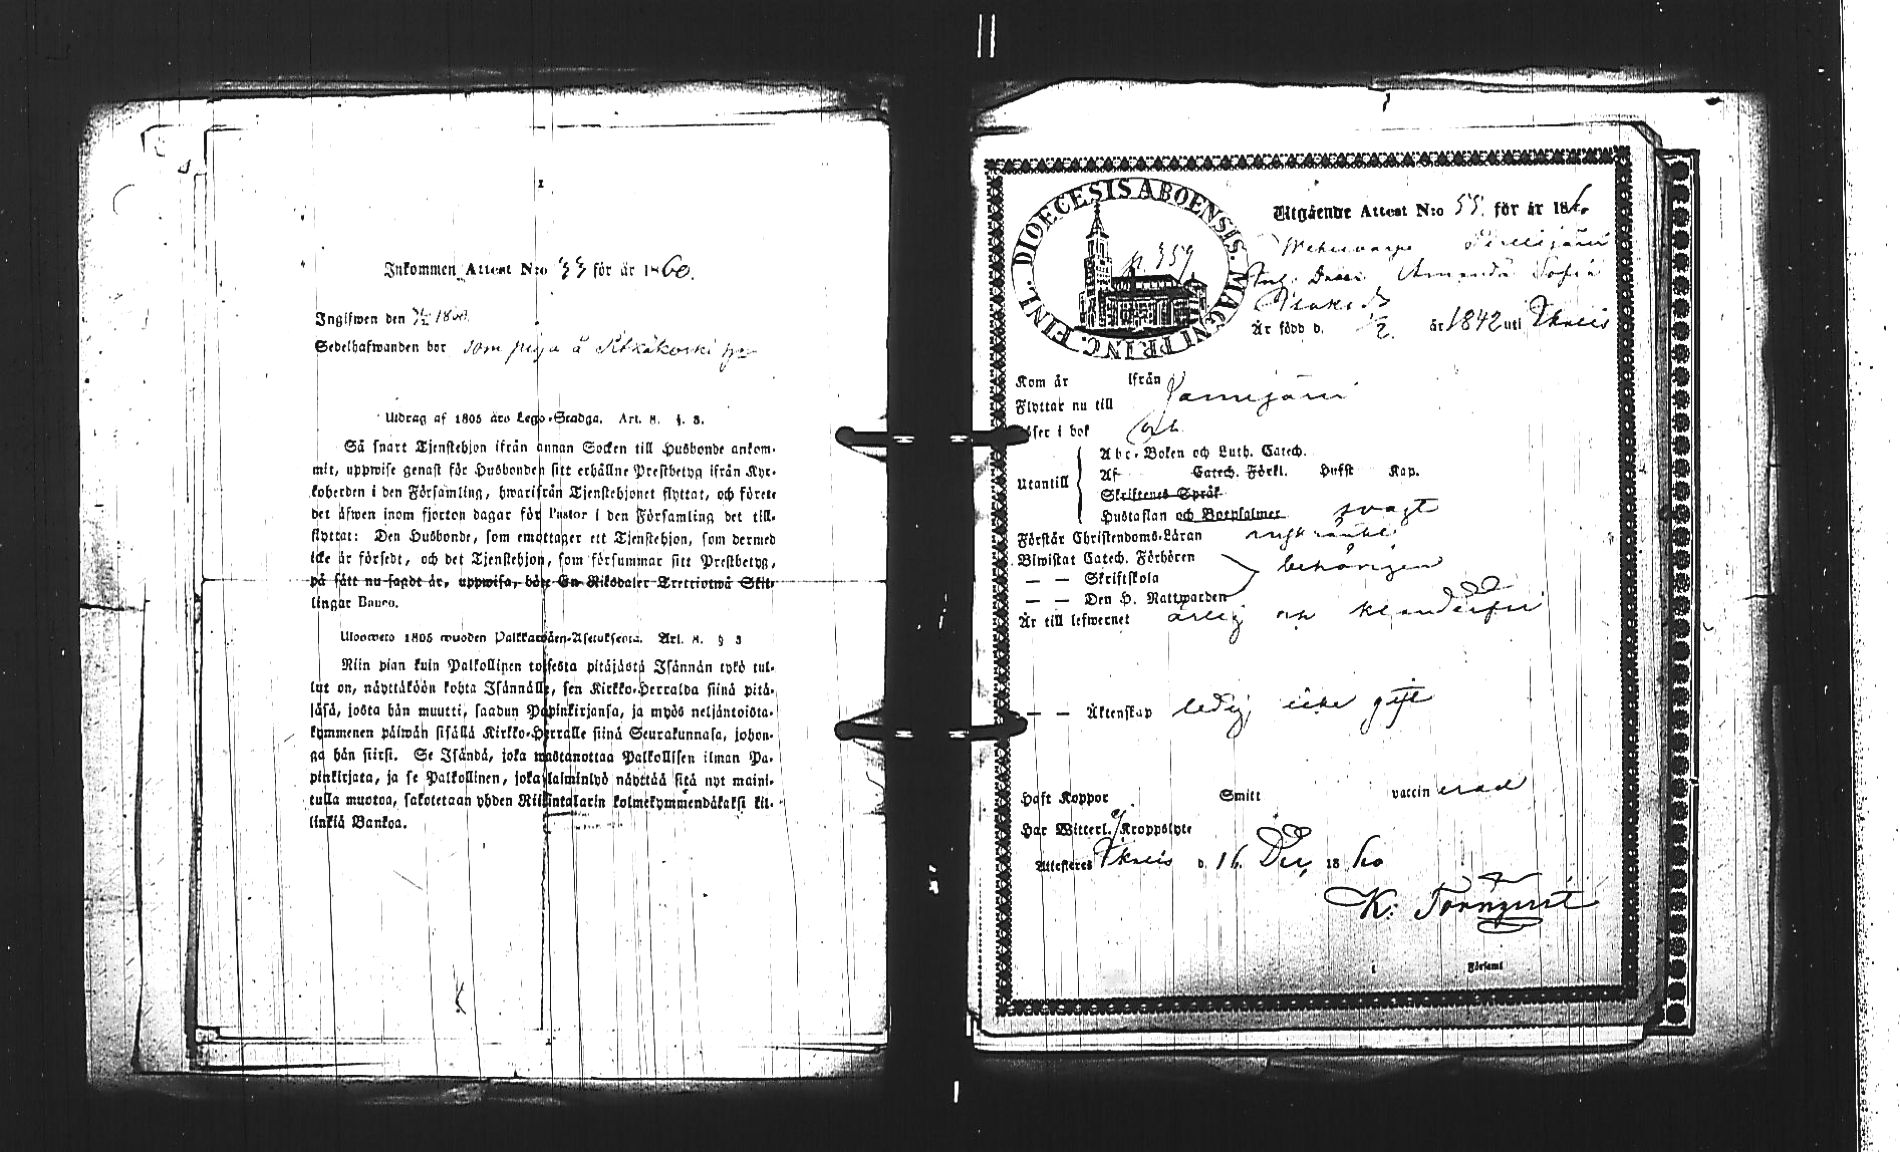 Inkommen Attest N:o 33 för år 1860.
Ingifwen den 1860.
Sedelhafwanden bor som piga å
Utdrag af 1805 års Lego-Stadga. Art. 8. §. 3.
Så snart Tjenstehjon ifrån annan Socken till Husbonde ankom-
mit, uppwise genast för Husbonden sitt erhållne Prestbetyg ifrån Kyr-
koherden i den Församling, hwarifrån Tjenstehjonet flyttat, och förete
det äfwen inom fjorton dagar för Pastor i den Församling det till-
flyttat: Den Husbonde, som emottager ett Tjenstehjon, som dermed
icke är försedt, och det Tjenstehjon, som försummar sitt Prestbetyg,
på sätt nu sagdt är, uppwisa, böte En Riksdaler Trettiotwå Skil-
lingar Banco.
Ulosweto 1805 wuoden Palkkawäen-Asetuksesta. Art. 8. § 3
Niin pian kuin Palkollinen toisesta pitäjästä Isännän tykö tul-
lut on, näyttäköön kohta Isännälle, sen Kirkko-Herralda siinä pitä-
jäsä, josta hän muutti, saadun Papinkirjansa, ja myös neljäntoista-
kymmenen päiwän sisällä Kirkko-Herralle siinä Seurakunnasa, johon-
ga hän siirsi. Se Isändä, joka wastanottaa Palkollisen ilman Pa-
pinkirjata, ja se Palkollinen, joka laiminlyö näyttää sitä nyt maini-
tulla muotoa, sakotetaan yhden Riikintalarin kolmekymmendäkaksi kil-
linkiä Bankoa.
DIOECESIS ABOENSIS. MAGNI PRINC. FINL.
p. 359
Utgående Attest N:o 55. för år 1860
Amanda Sofia
Är född d. 1/2 år 1842 uti Ikalis
Kom år ifrån
Flyttar nu till Jämijärvi
Läser i bok
Utantill
Abc-Boken och Luth. Catech.
Af Catech. Förkl. Hufst Kap.
Skriftenes Språk
Hustaflan och Botpsalmer svagt
Förstår Christendoms-Läran
Biwistat Catech. Förhören behörigen
— — Skriftskola
— — Den H. Nattwarden
Är till lefwernet ärlig och klanderfri
— — Äktenskap ledig, icke gift
Haft Koppor Smitt vaccinerad
Har Witterl. Ej Kroppslyte
Attesteras Ikalis d. 16. Dec, 1860
K: Törnqvist
Församl